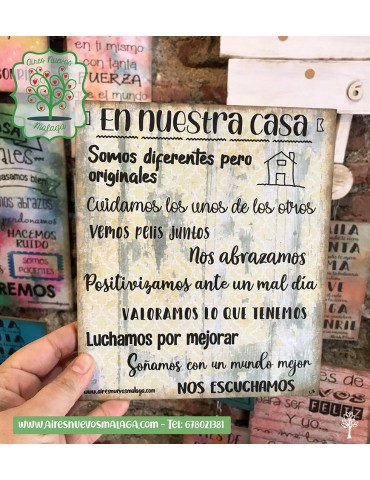 Aires Nuevos
Málaga
en ti mismo
con tanta
FUERZA
que el mundo
En nuestra casa
Somos diferentes pero
originales
Cuidamos los unos de los otros
Vemos pelis juntos
Nos abrazamos
Positivizamos ante un mal día
VALORAMOS LO QUE TENEMOS
Luchamos por mejorar
Soñamos con un mundo mejor
NOS ESCUCHAMOS
www.airesnuevosmalaga.com
HACEMOS
RUIDO
SOMOS
FELIZ
www.airesnuevosmalaga.com - Tel: 678021381